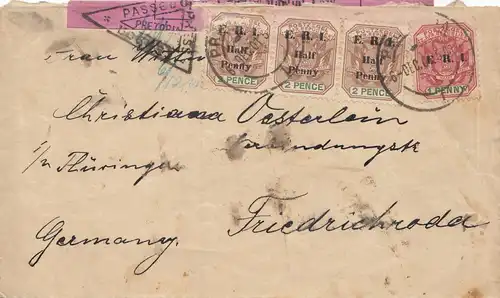 PASSED
PRETORIA
E. R. I. Half Penny 2 PENCE
E. R. I. Half Penny 2 PENCE
E. R. I. Half Penny 2 PENCE
E. R. I. 1 PENNY
DEC
Frau
Christiana Oesterlein
i/n Thüringen
Friedrichroda
Germany.